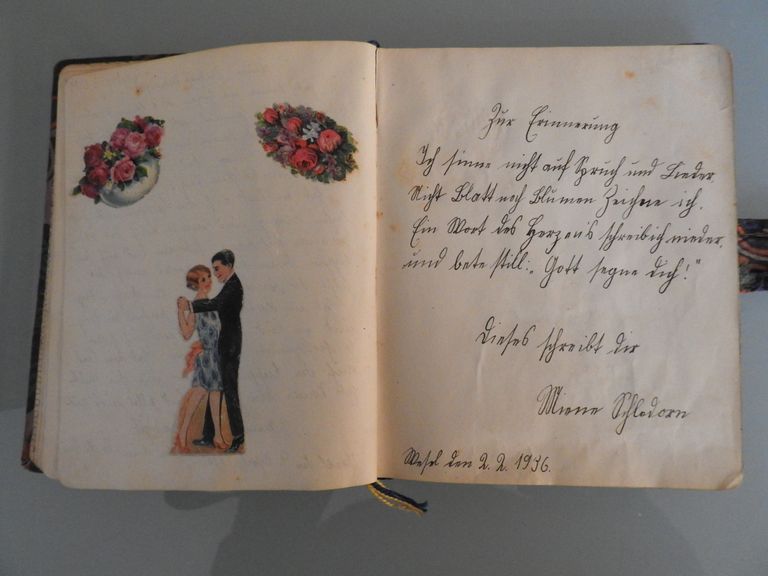 Zur Erinnerung
Ich sinne nicht auf Spruch und Lieder
Nicht Blatt noch Blumen Zeichne ich.
Ein Wort des Herzens schreib ich nieder,
und bete still: „Gott segne dich!"
Dieses schreibt dir
Miene Schledorn
Wesel den 2. 2. 1936.